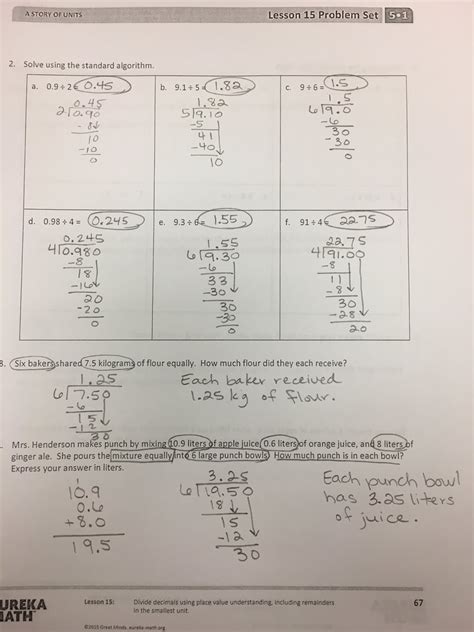 A STORY OF UNITS
Lesson 15 Problem Set 5•1
2. Solve using the standard algorithm.
a. 0.9 ÷ 2 = 0.45
0.45
2 0.90
- 8
10
-10
0
b. 9.1 ÷ 5 = 1.82
1.82
5 9.10
-5
41
-40
10
c. 9 ÷ 6 = 1.5
1.5
6 9.0
-6
30
-30
0
d. 0.98 ÷ 4 = 0.245
0.245
4 0.980
-8
18
-16
20
-20
0
e. 9.3 ÷ 6 = 1.55
1.55
6 9.30
-6
33
-30
30
-30
0
f. 91 ÷ 4 = 22.75
22.75
4 91.00
-8
11
-8
30
-28
20
3. Six bakers shared 7.5 kilograms of flour equally. How much flour did they each receive?
1.25
6 7.50
-6
15
-12
30
Each baker received
1.25 kg of flour.
Mrs. Henderson makes punch by mixing 10.9 liters of apple juice, 0.6 liters of orange juice, and 8 liters of
ginger ale. She pours the mixture equally into 6 large punch bowls. How much punch is in each bowl?
Express your answer in liters.
1
10.9
0.6
+8.0
19.5
3.25
6 19.50
18
15
-12
30
Each punch bowl
has 3.25 liters
of juice.
UREKA
MATH
Lesson 15: Divide decimals using place value understanding, including remainders
in the smallest unit.
67
©2015 Great Minds. eureka-math.org